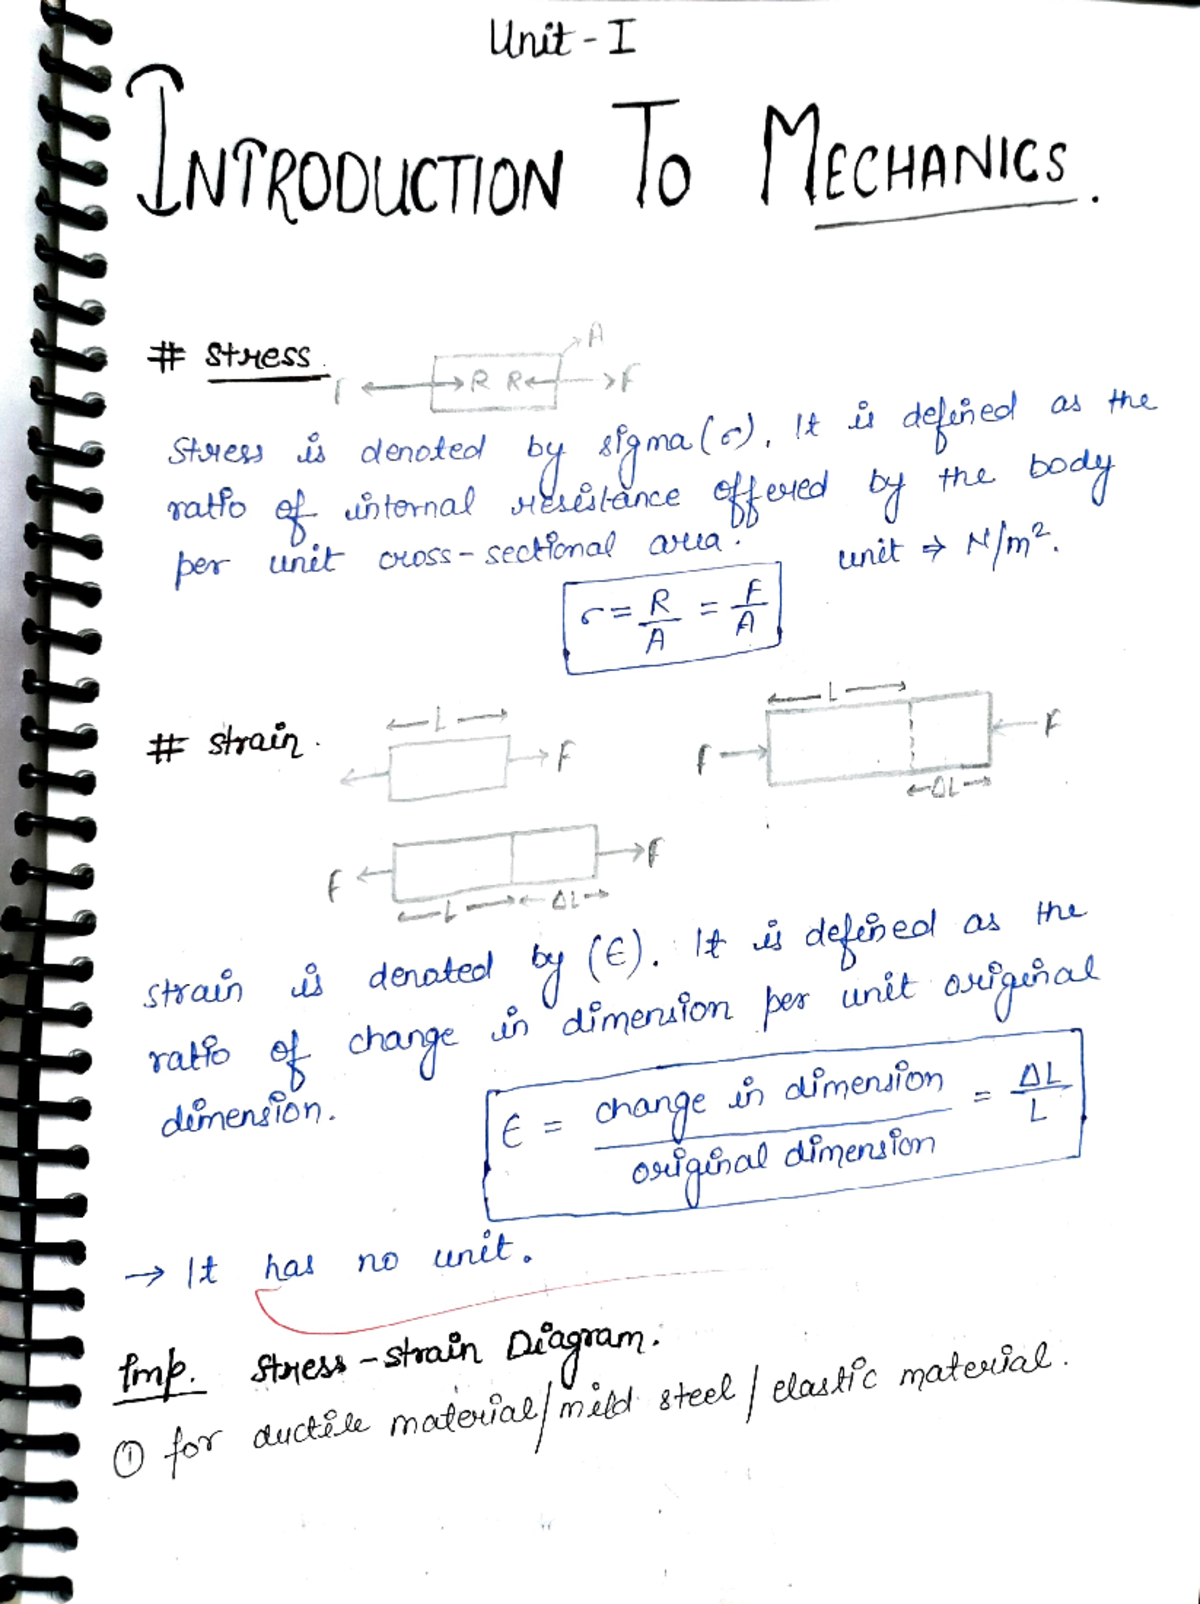 Unit - I
INTRODUCTION TO MECHANICS.
# Stress.
A
F R R F
Stress is denoted by sigma (σ). It is defined as the
ratio of internal resistance offered by the body
per unit cross-sectional area. unit ⇒ N/m².
σ = R/A = F/A
# strain.
L
F
L
F F
ΔL
F F
L ΔL
strain is denoted by (ϵ). It is defined as the
ratio of change in dimension per unit original
dimension.
ϵ = change in dimension / original dimension = ΔL/L
→ It has no unit.
Imp. Stress-strain Diagram.
① for ductile material/mild steel/elastic material.